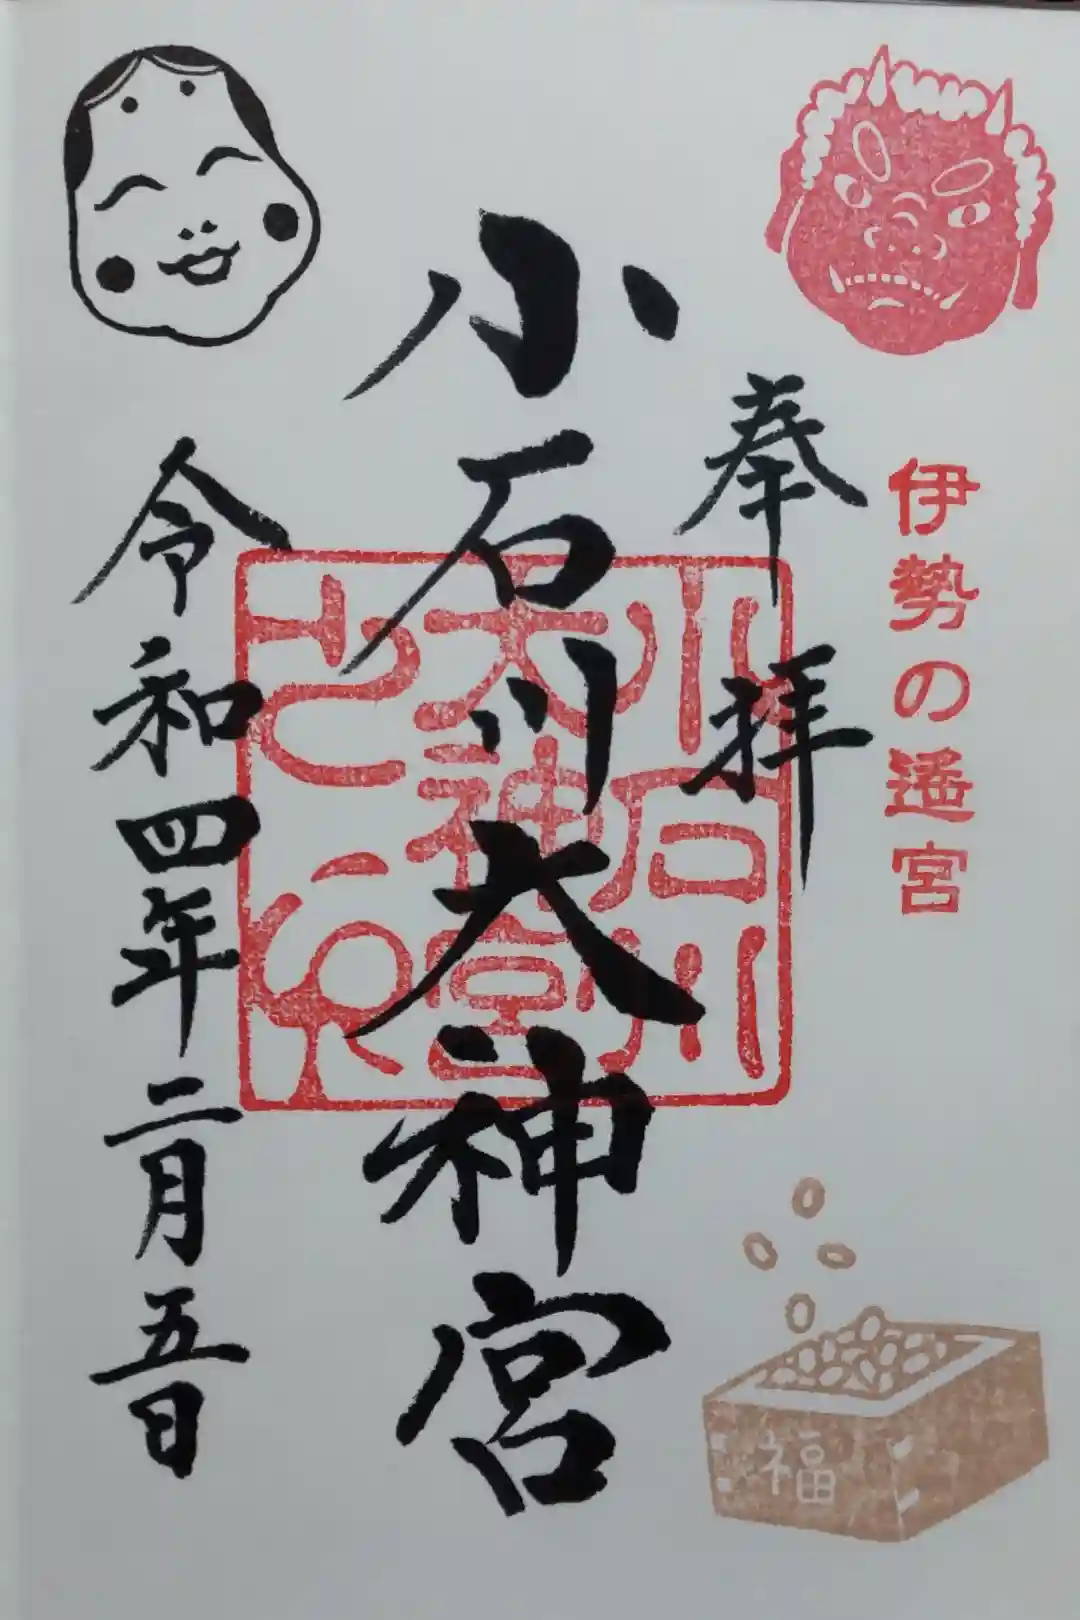 伊勢の遥宮
奉拝
小石川大神宮
令和四年二月五日
小石川
大神宮
福